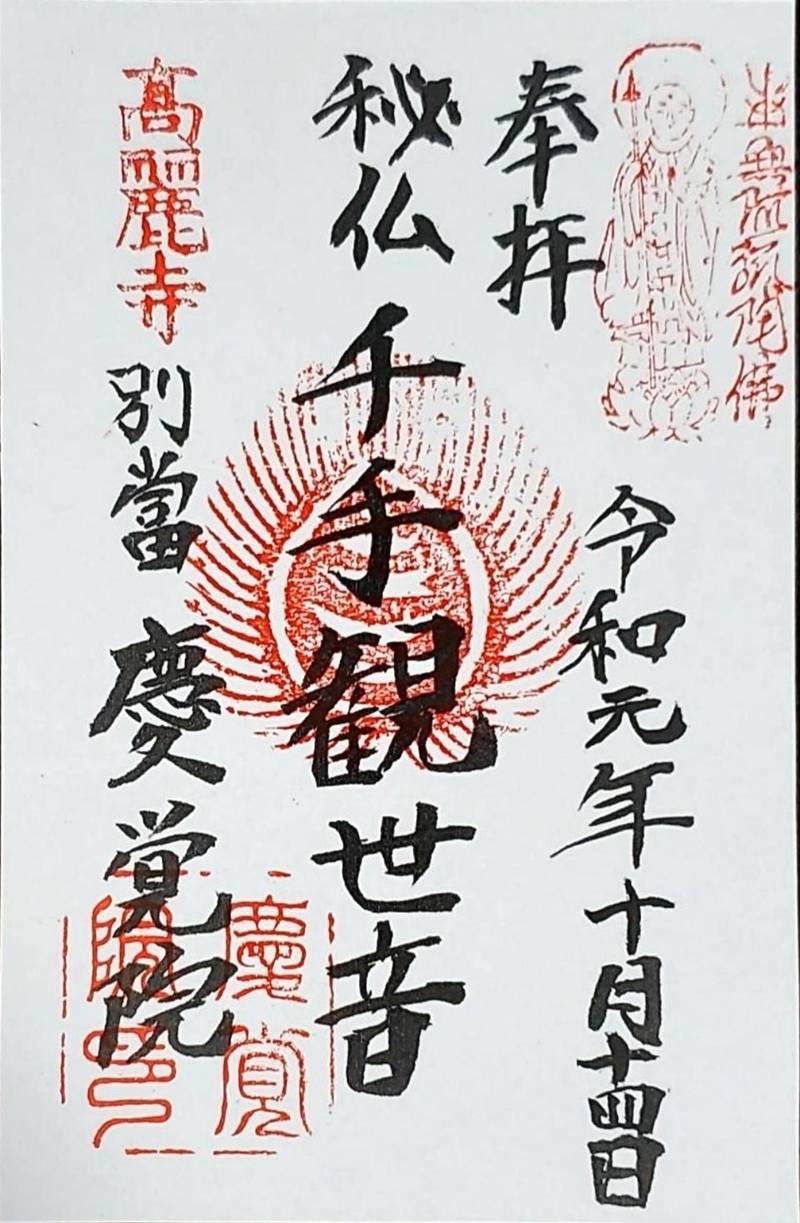 南無阿弥陀佛
奉拝
令和元年十月十四日
秘仏 千手観世音
高麗寺
別當 慶覚院
慶覚
院印